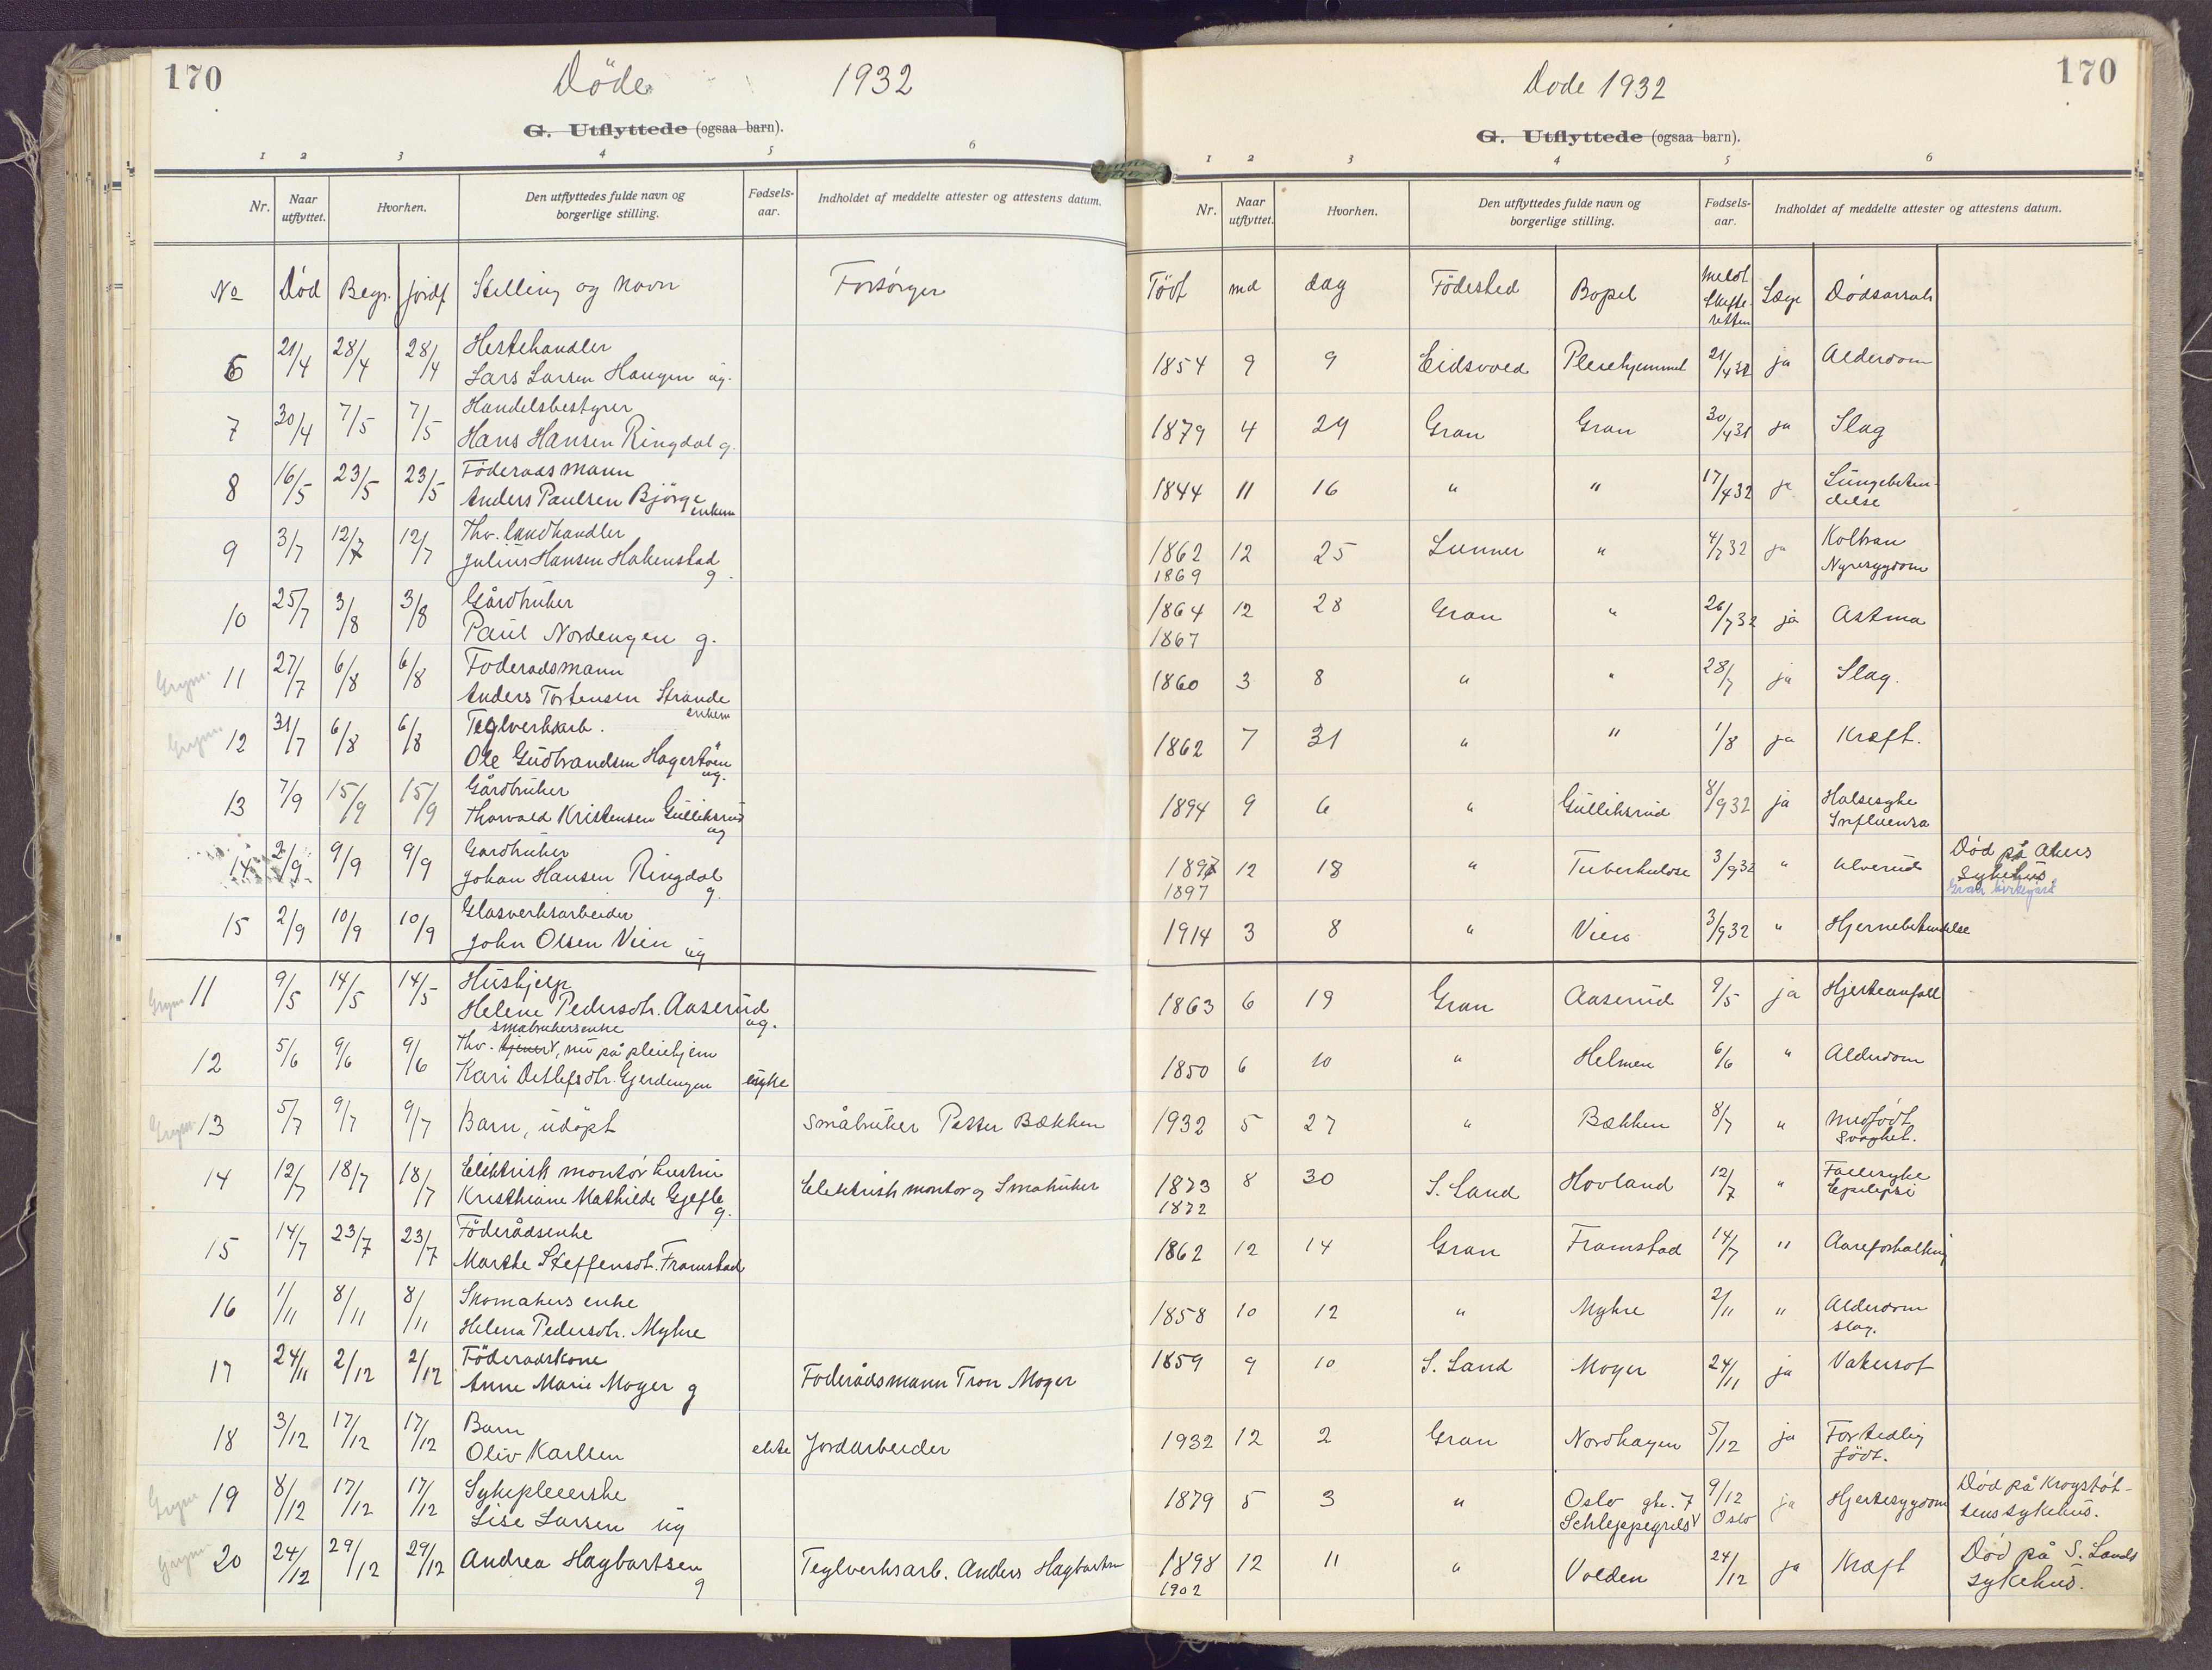 170
Döde 1932
G. Utflyttede (ogsaa barn).
1 2 3 4 5 6
Nr. Naar utflyttet. Hvorhen. Den utflyttedes fulde navn og borgerlige stilling. Fødsels-aar. Indholdet af meddelte attester og attestens datum.
No Död Begr. jordf Stilling og navn Forsörger
6 21/4 28/4 28/4 Hestehandler
Lars Larsen Haugen ug.
7 30/4 7/5 7/5 Handelsbestyrer
Hans Hansen Ringdal g.
8 16/5 23/5 23/5 Föderaadsmann
Anders Paulsen Björge enkem
9 3/7 12/7 12/7 Thv. landhandler
Julius Hansen Hakenstad g.
10 25/7 3/8 3/8 Gårdbruker
Paul Nordengen g.
Grym. 11 27/7 6/8 6/8 Foderadsmann
Anders Torstensen Strande enkem
Grym. 12 31/7 6/8 6/8 Teglverksarb.
Ole Gudbrandsen Hagerstuen ug.
13 7/9 15/9 15/9 Gårdbruker
Thorvald Kristensen Gulliksrud ug
14 2/9 9/9 9/9 Gardbruker
Johan Hansen Ringdal g.
15 2/9 10/9 10/9 Glasverksarbeider
John Olsen Vien ug
Grym 11 9/5 14/5 14/5 Hushjelp
Helene Pedersdtr. Aaserud ug.
småbrukersenke
12 5/6 9/6 9/6 Thv. tjener, nu på pleiehjem
Kari Detlefsdtr. Gjerdingen enke
Grym. 13 5/7 9/7 9/7 Barn, udøpt småbruker Petter Bækken
14 12/7 18/7 18/7 Elektrisk montör hustru
Kristhiane Mathilde Gjefle g. Elektrisk montor og Småbruker
15 14/7 23/7 23/7 Föderådsenke
Marthe Steffensdt. Framstad
16 1/11 8/11 8/11 Skomakers enke
Helena Pedersdtr. Myhre
17 24/11 2/12 2/12 Föderadskone
Anne Marie Moger g Foderådsmann Tron Moger
18 3/12 17/12 17/12 Barn
Oliv Karlsen ekte Jordarbeider
Grym 19 8/12 17/12 17/12 Sykepleierske
Lise Larsen ug
Grym 20 24/12 29/12 29/12 Andrea Hagbartsen g Teglverksarb. Anders Hagbartsen
170
Dode 1932
G. Utflyttede (ogsaa barn).
1 2 3 4 5 6
Nr. Naar utflyttet. Hvorhen. Den utflyttedes fulde navn og borgerlige stilling. Fødsels-aar. Indholdet af meddelte attester og attestens datum.
Födt md dag Födested Bopel meldt skifte-retten Læge Dödsarsak
1854 9 9 Eidsvold Pleiehjemmet 21/4 32 ja Alderdom
1879 4 29 Gran Gran 30/4 31 ja Slag
1844 11 16 " " 17/4 32 ja Lungebeten-
delse
1862 12 25 Lunner " 4/7 32 ja Kolbran
1869 Nyresygdom
1864 12 28 Gran " 26/7 32 ja Astma
1867
1860 3 8 " " 28/7 ja Slag.
1862 7 31 " " 1/8 ja Kræft.
1894 9 6 " Gulliksrud 8/9 32 ja Halsesyke
Influensa
1897 12 18 " Tuberkulose 3/9 32 " Ulverud Död på Akers
1897 Sykehus
Gran kirkegård
1914 3 8 " Vien 3/9 32 " Hjernebetendelse
1863 6 19 Gran Aaserud 9/5 ja Hjerteanfall
1850 6 10 " Helmen 6/6 " Alderdom
1932 5 27 " Bækken 8/7 " Medfödt
svaghet.
1873 8 30 S. Land Hovland 12/7 " Fallesyke
1872 Epilepsi
1862 12 14 Gran Framstad 14/7 " Aareforkalkning
1858 10 12 " Myhre 2/11 " Alderdom
slag.
1859 9 10 S. Land Moger 24/11 ja Vatersot
1932 12 2 Gran Nordhagen 5/12 ja For tidlig
födt.
1879 5 3 " Oslo gt. 7 9/12 ja Hjertesygdom Död på Krogstöt-
Schleppegrels Oslo tens sykehus.
1898 12 11 " Volden 24/12 ja Kræft Död på S. Lands
1902 sykehus.